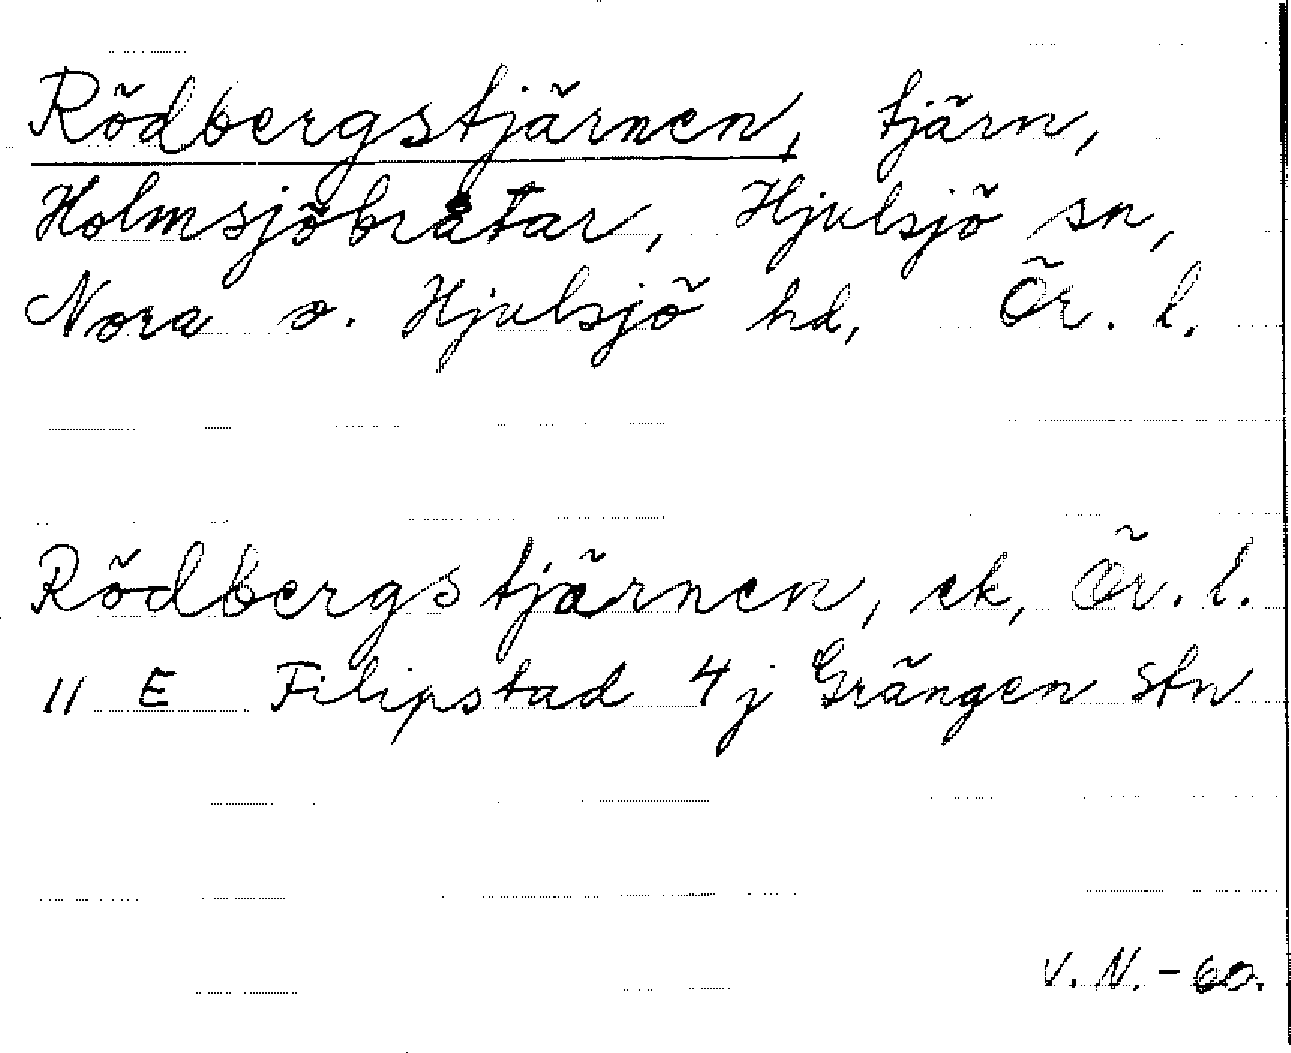 Rödbergstjärnen, tjärn,
Holmsjöbråtar, Hjulsjö sn,
Nora o. Hjulsjö hd, Ör. l.
Rödbergstjärnen, ek, Ör. l.
11 E Filipstad 4 j Grängen stn
V. N. - 60.